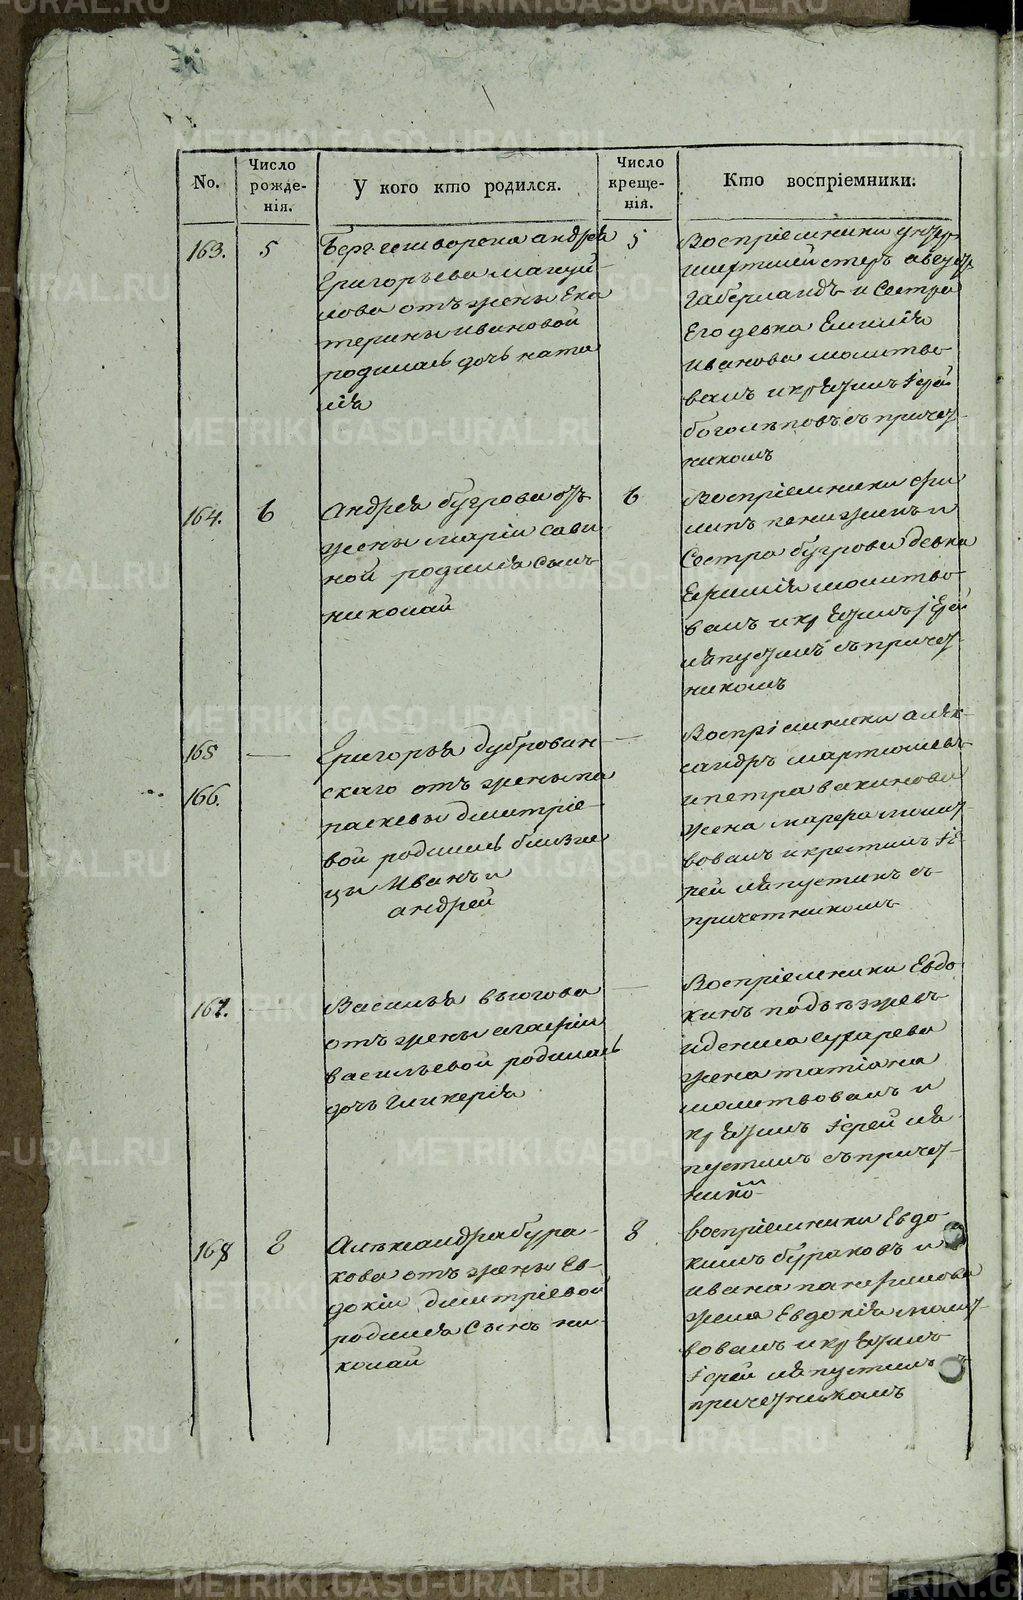 No.
Число рожде-нія.
У кого кто родился.
Число креще-нія.
Кто воспріемники:
163.
5
Берггешворена андрея
Григорьева мануй-
лова отъ жены Ека
терины ивановой
родилась дочь ната
лія
5
Воспріемники унтер
шихтмейстеръ августъ
Габерландъ и Сестра
Его девка Емилія
иванова молитво-
валъ и крестилъ Іерей
боголеповъ съ причет-
никомъ
164.
6
Андрея бугрова отъ
жены маріи сави
ной родился сынъ
николай
6
Воспріемники фи
липъ и
Сестра бугрова девка
молитво-
валъ и крестилъ іерей
ляпустинъ съ причет-
никомъ
165
166.
Григорья дубровин-
скаго отъ жены па
расковы дмитріе-
вой родились близне
цы Иванъ и
андрей
Воспріемники алек-
сандръ мартюшевъ
и петра вакинова
жена марфа молит-
вовалъ и крестилъ Іе
рей ляпустинъ съ
причетникомъ
167.
Василья вьюгова
отъ жены агафіи
васильевой родилась
дочь гликерія
Воспріемники Евдо
кимъ
и дениса сухарева
жена татіана
молитвовалъ и
крестилъ Іерей ля
пустинъ съ причет-
нико
168
8
Александра бура-
кова отъ жены Ев-
докіи дмитріевой
родился Сынъ ни-
колай
8
воспріемники Евдо
кимъ бураковъ и
ивана панфилова
жена Евдокія молит-
вовалъ и крестилъ
Іерей ляпустинъ съ
причетникомъ
METRIKI.GASO-URAL.RU